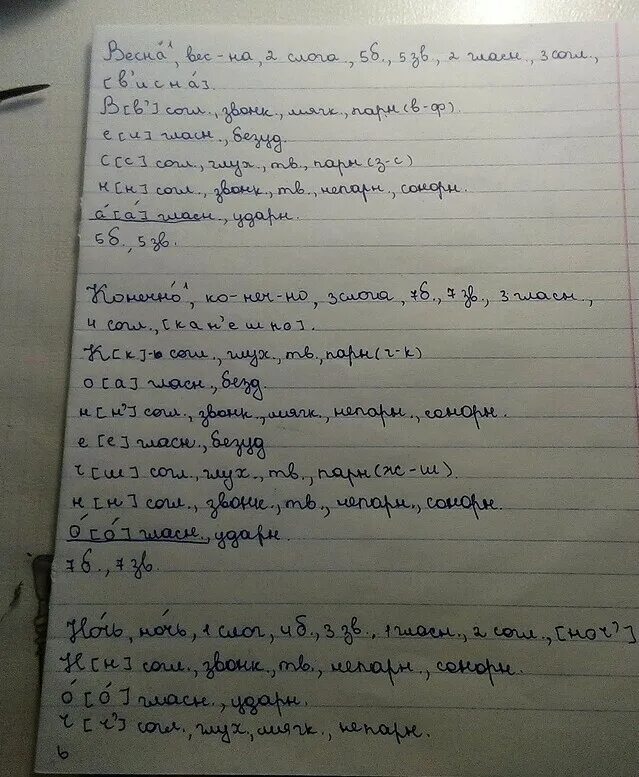 Весна́¹, вес-на, 2 слога, 5б., 5зв., 2 гласн., 3согл.,
[в'исна́].
В[в'] согл., звонк., мягк., парн(в-ф).
е[и] гласн., безуд.
с[с] согл., глух., тв., парн(з-с)
н[н] согл., звонк., тв., непарн., сонорн.
а́[а́] гласн., ударн.
5б., 5зв.
Конечно́¹, ко-неч-но, 3слога, 7б., 7зв., 3гласн.,
4 согл., [кан'ешно].
К[к]-согл., глух., тв., парн(г-к)
о[а] гласн., безд.
н[н'] согл., звонк., мягк., непарн., сонорн.
е[е] гласн., безуд
ч[ш] согл., глух., тв., парн(ж-ш).
н[н] согл., звонк., тв., непарн., сонорн.
о́[о́] гласн., ударн.
7б., 7зв.
Но́чь, но́чь, 1 слог, 4б., 3зв., 1гласн., 2 согл., [ноч']
Н[н] согл., звонк., тв., непарн., сонорн.
о́[о́] гласн., ударн.
ч[ч'] согл., глух, мягк., непарн.
ь